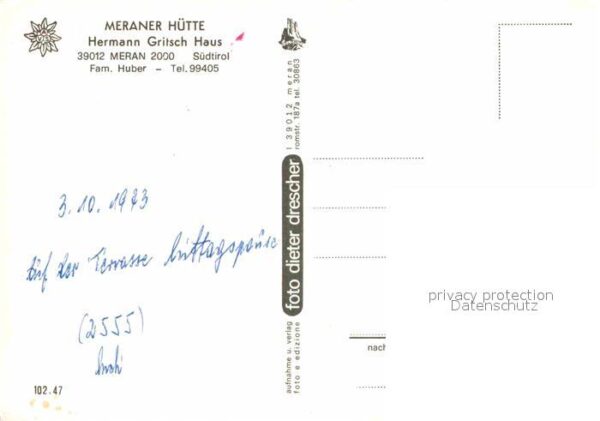 MERANER HÜTTE
Hermann Gritsch Haus
39012 MERAN 2000 Südtirol
Fam. Huber - Tel. 99405
3.10.1973
Auf der Terrasse Mittagspause
(2555)
102.47
foto dieter drescher
I 39012 meran
romstr. 187a tel. 30863
aufnahme u. verlag
foto e edizione
nach
privacy protection
Datenschutz